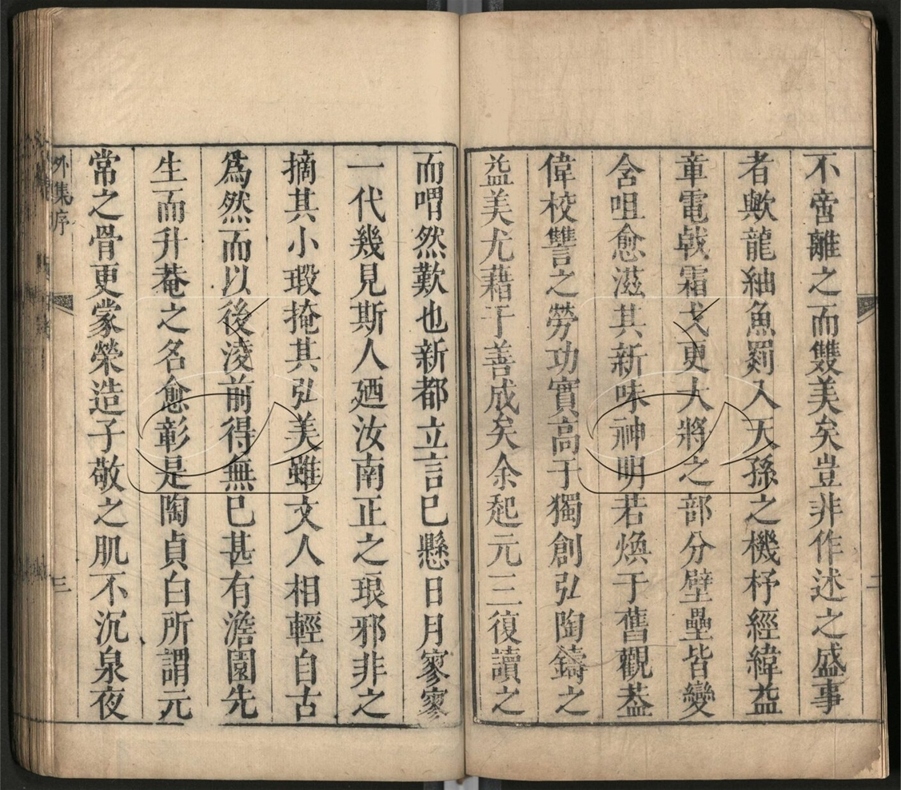 不啻離之而雙美矣豈非作述之盛事
者歟龍紬魚罽入天孫之機杼經緯益
章電戟霜戈更大將之部分壁壘皆變
含咀愈滋其新味神明若煥于舊觀葢
偉校讐之勞功實高于獨創弘陶鑄之
益美尤藉于善成矣余起元三復讀之
而喟然歎也新都立言已懸日月寥寥
一代幾見斯人廼汝南正之琅邪非之
摘其小瑕掩其弘美雖文人相輕自古
爲然而以後淩前得無已甚有澹園先
生而升菴之名愈彰是陶貞白所謂元
常之骨更蒙榮造子敬之肌不沉泉夜
外集序
三